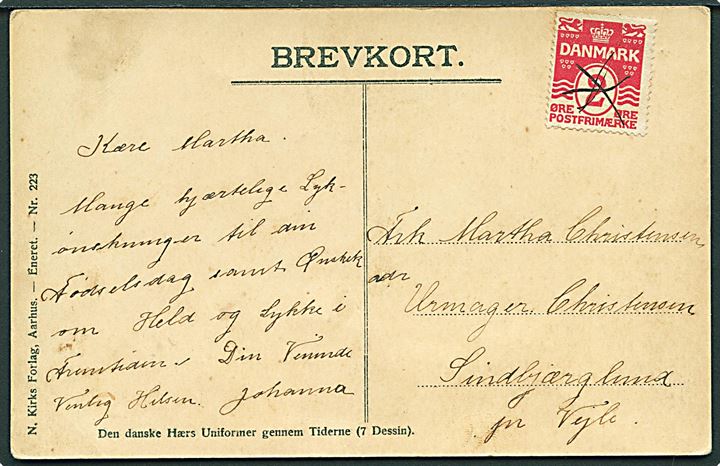 BREVKORT.
DANMARK
2
ØRE ØRE
POSTFRIMÆRKE
Kære Martha.
Mange hjærtelige Lyk-
ønskninger til din
Fødselsdag samt Ønsket
om Held og Lykke i
Fremtiden. Din Veninde
Venlig Hilsen. Johanna
Frk Martha Christensen,
adr
Urmager. Christensen
Sindbjærglund
pr Vejle.
N. Kirks Forlag, Aarhus. — Eneret. — Nr. 223
Den danske Hærs Uniformer gennem Tiderne (7 Dessin).